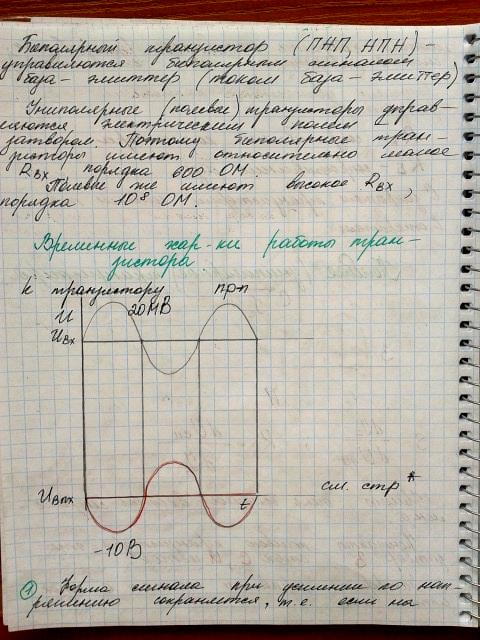 Биполярный транзистор (ПНП, НПН) –
управляются биполярным сигналом
база – эмиттер (током база – эмиттер)
Униполярные (полевые) транзисторы управ–
ляются электрическим полем
затвором. Поэтому биполярные тран–
зисторы имеют относительно малое
RВх порядка 600 ОМ.
Полевые же имеют высокое RВх,
порядка 10⁸ ОМ.
Временные хар-ки работы тран–
зистора.
К транзистору n-p-n
U 20МВ
UВх
см. стр *
UВых t
–10В
① Форма сигнала при усилении по нап–
ряжению сохраняется, т.е. если на